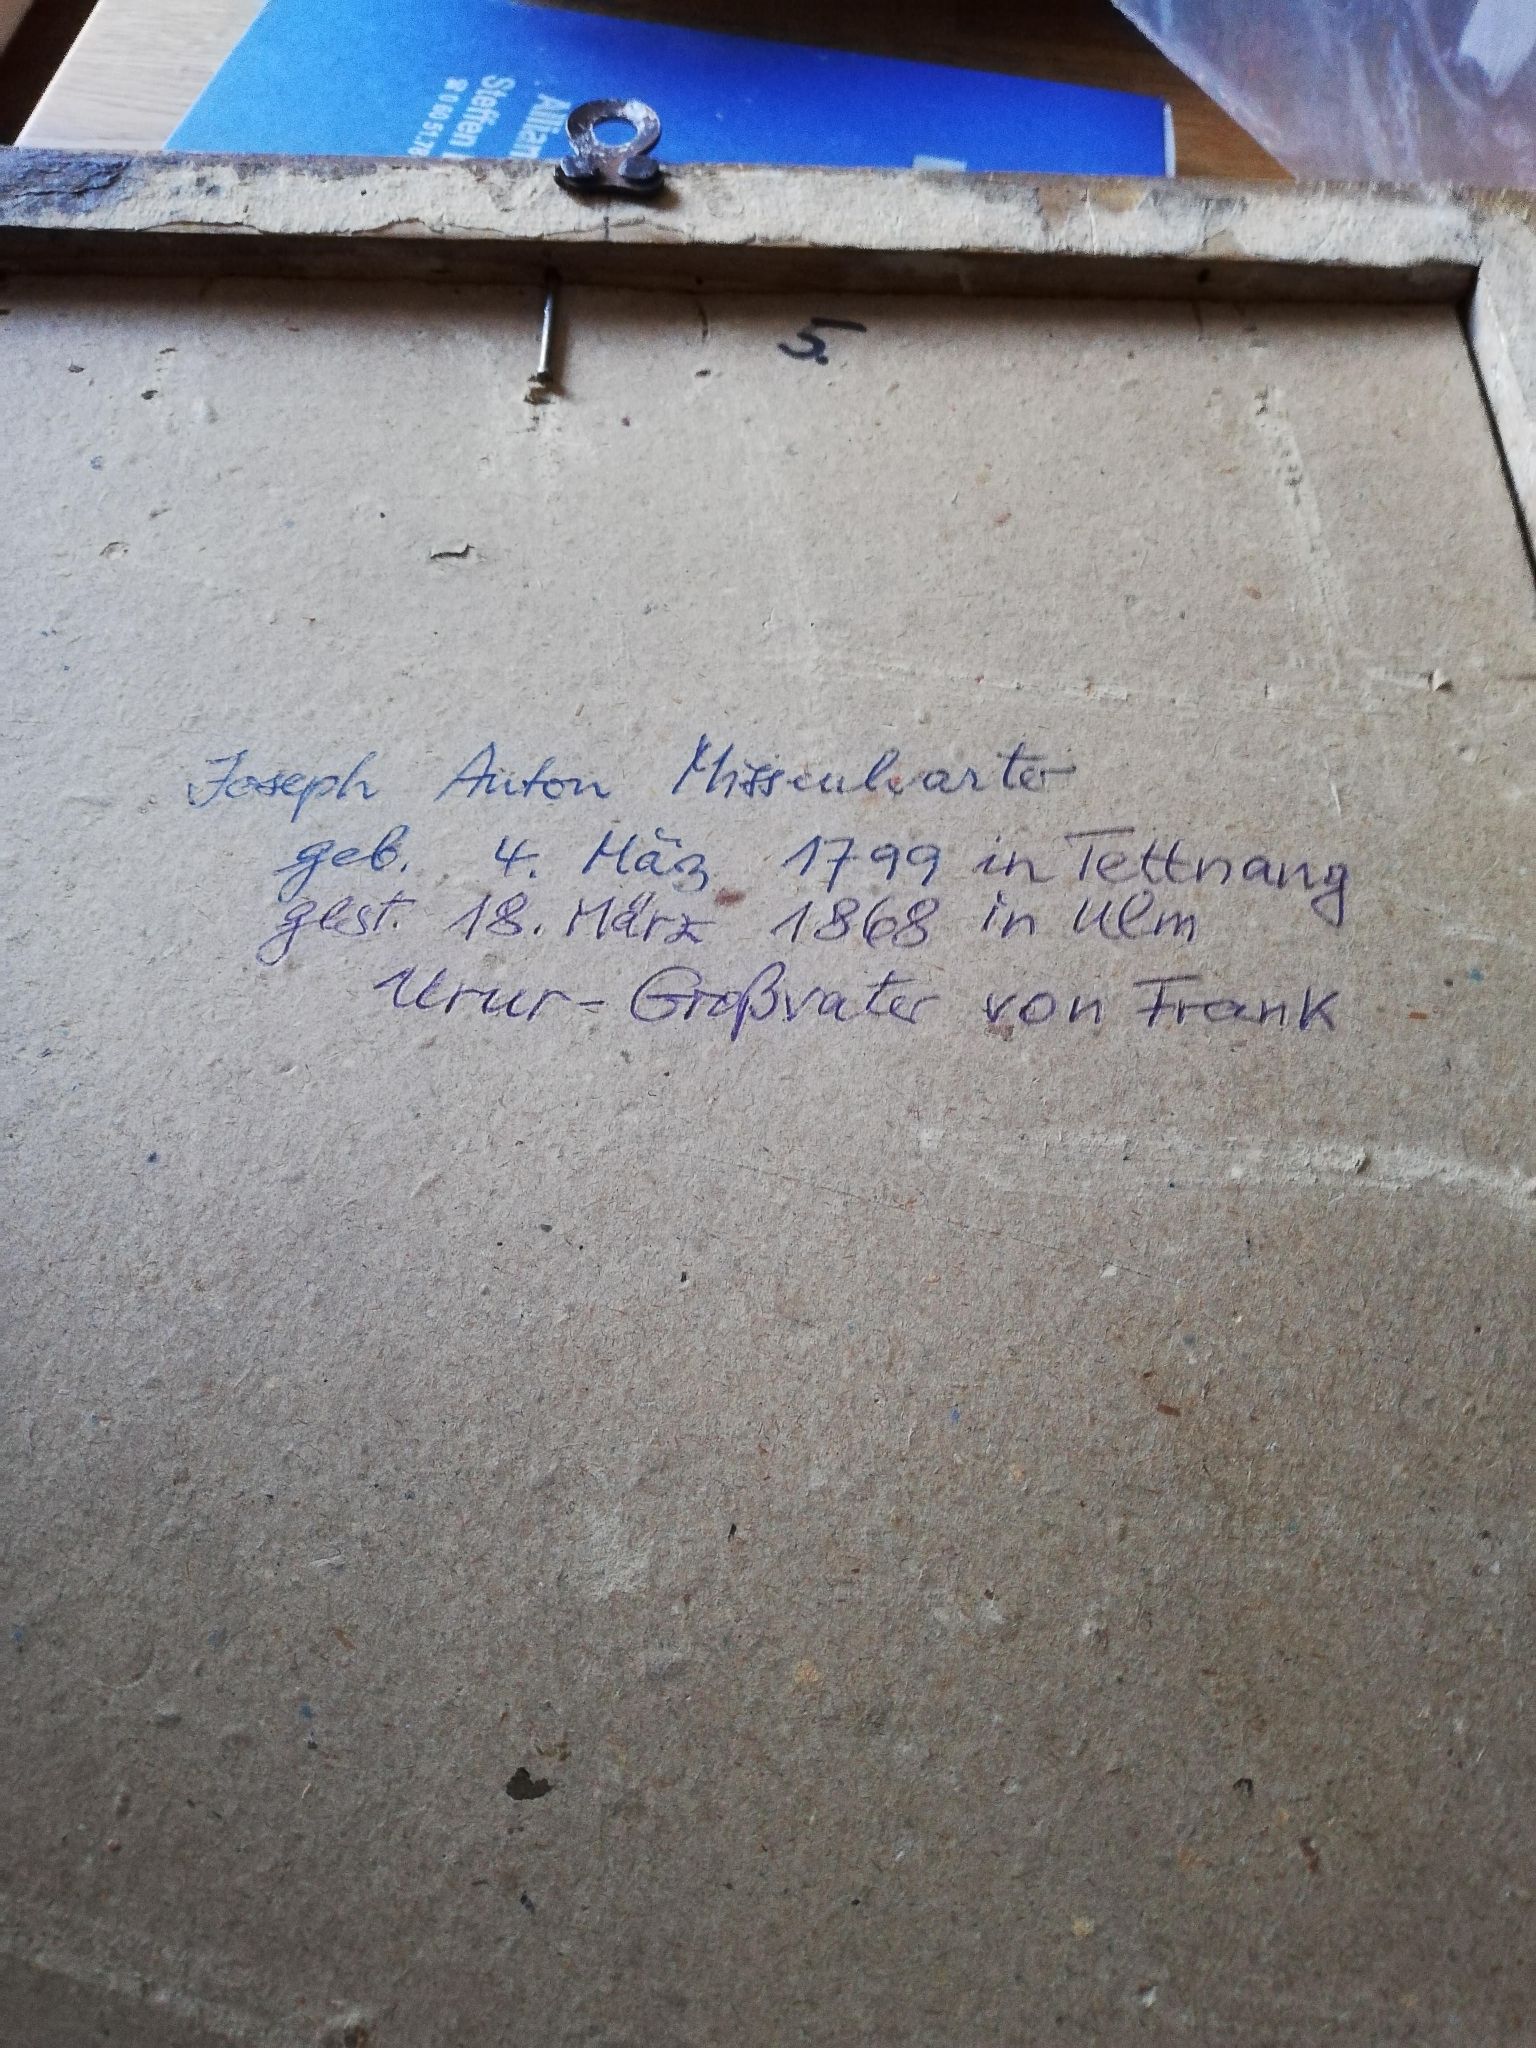 Allian
Steffen
5.
Joseph Anton Missenharter
geb. 4. März 1799 in Tettnang
gest. 18. März 1868 in Ulm
Urur-Großvater von Frank